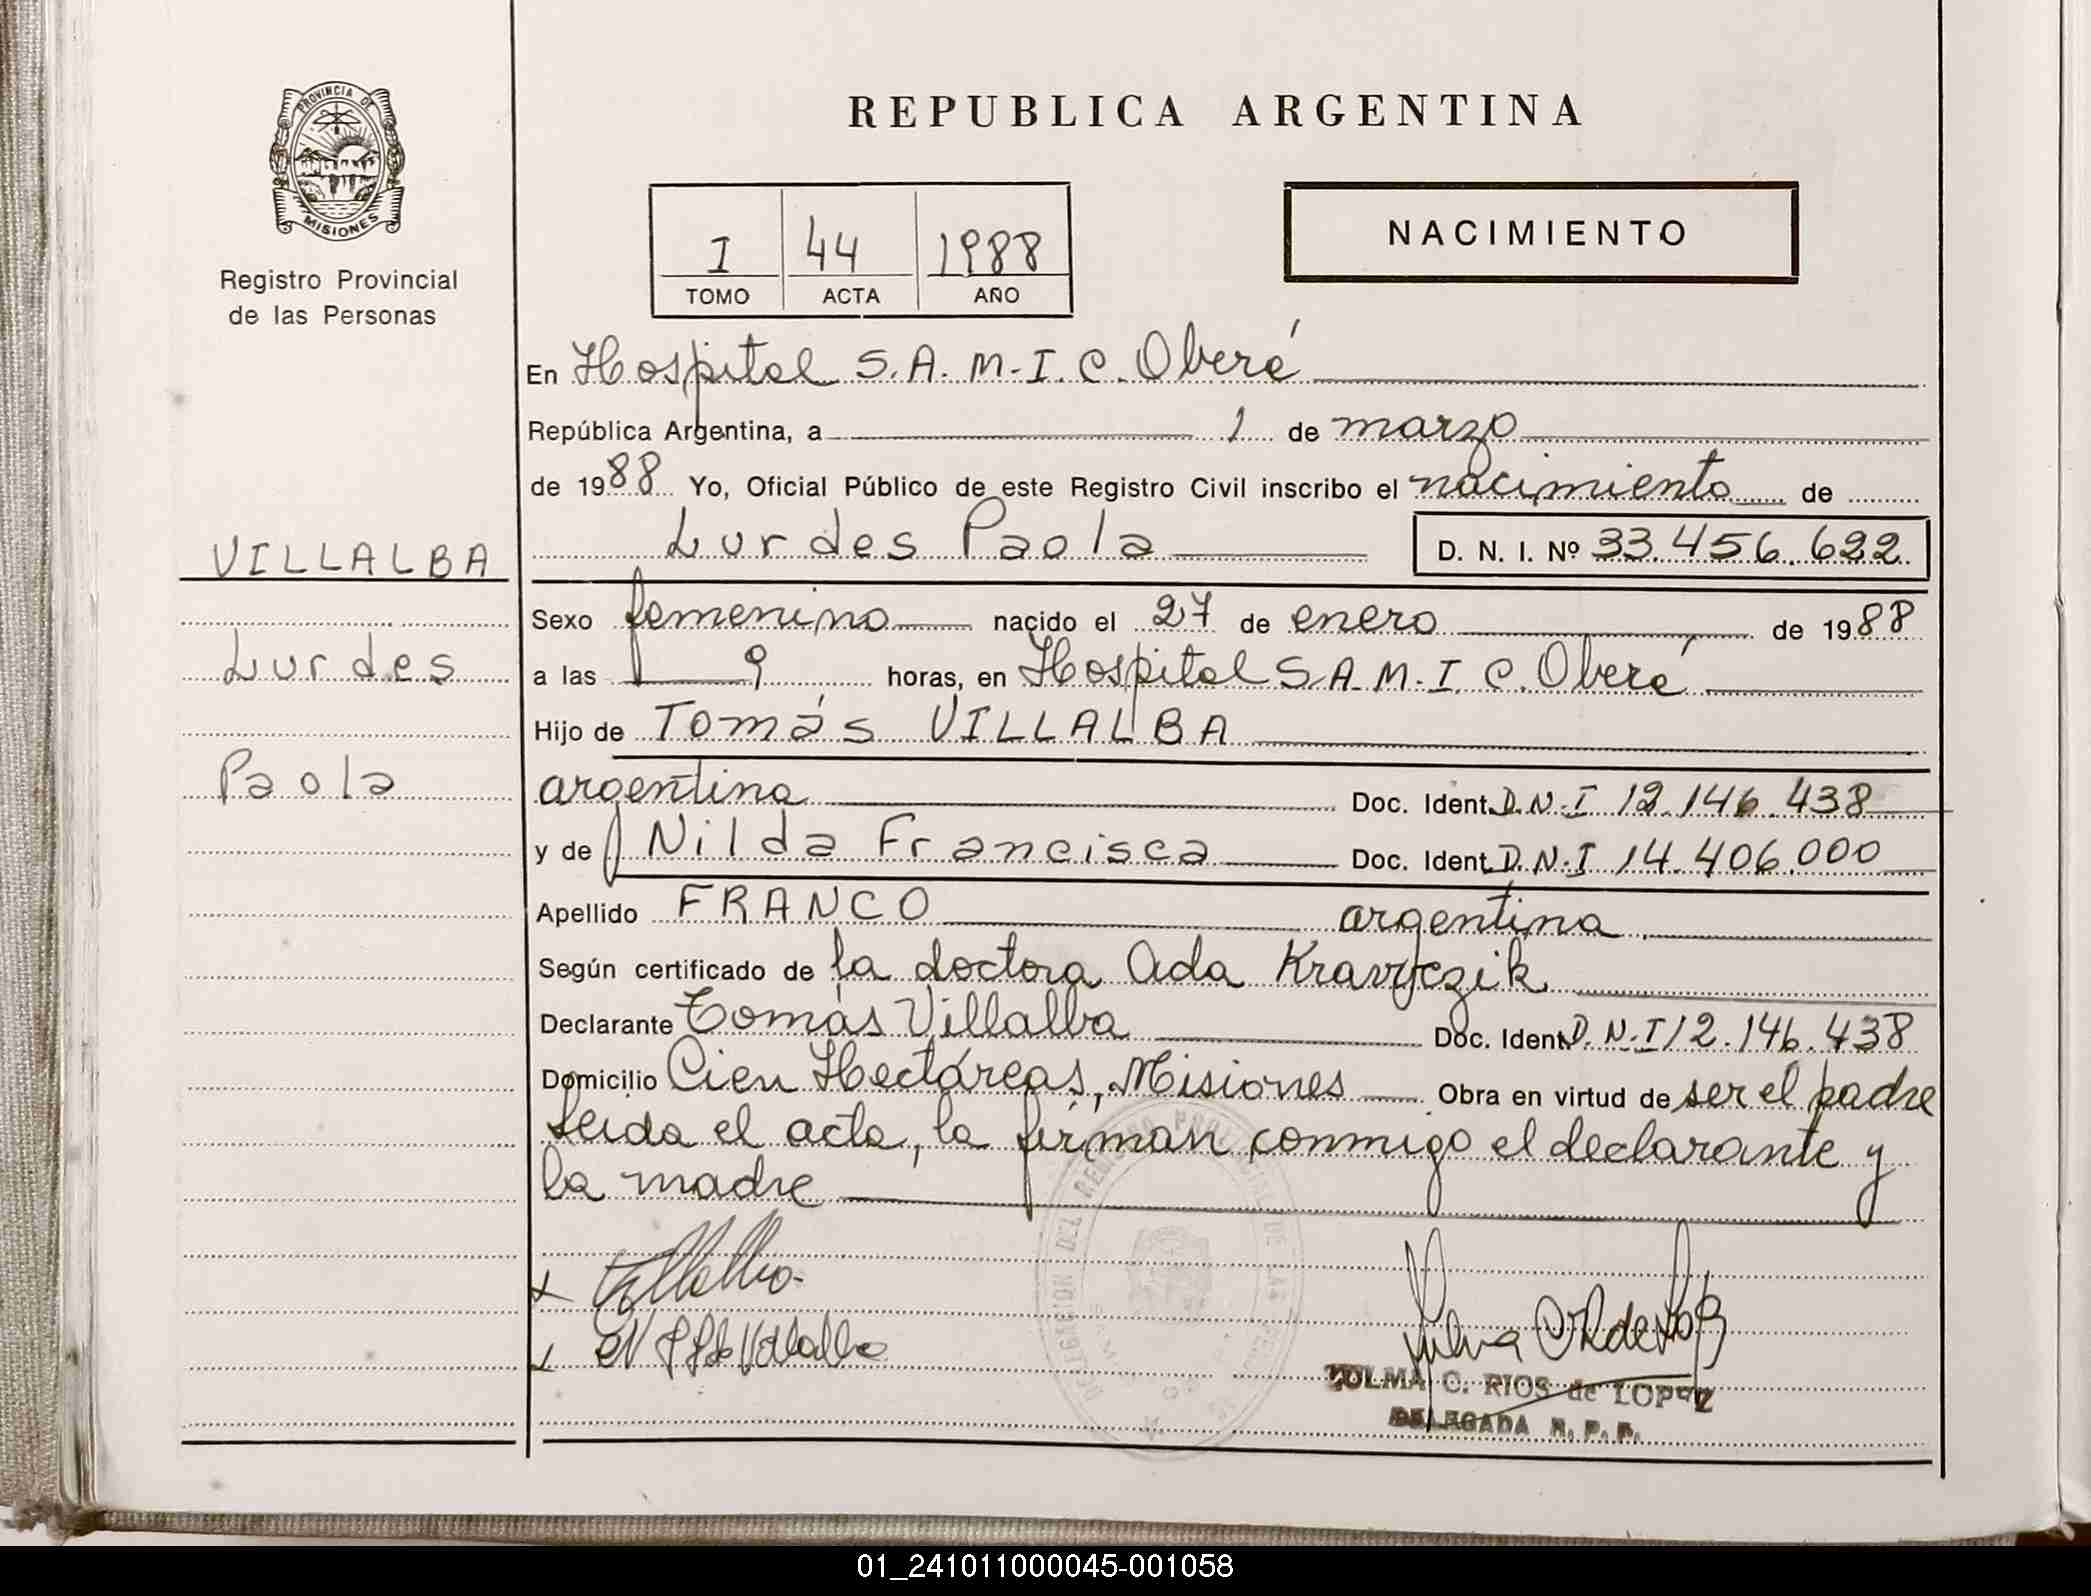 PROVINCIA DE
MISIONES
Registro Provincial
de las Personas
REPUBLICA ARGENTINA
I 44 1988
TOMO ACTA AÑO
NACIMIENTO
En Hospital S.A.M.I.C. Oberá
República Argentina, a 1 de marzo
de 1988 Yo, Oficial Público de este Registro Civil inscribo el nacimiento de
Lurdes Paola D. N. I. Nº 33.456.622
VILLALBA
Lurdes
Paola
Sexo femenino nacido el 27 de enero de 1988
a las 9 horas, en Hospital S.A.M.I.C. Oberá
Hijo de Tomás VILLALBA
argentina Doc. Ident. D.N.I 12.146.438
y de Nilda Francisca Doc. Ident. D.N.I 14.406.000
Apellido FRANCO argentina
Según certificado de la doctora Ada Kravyczik
Declarante Tomás Villalba Doc. Ident. D.N.I 12.146.438
Domicilio Cien Hectáreas, Misiones Obra en virtud de ser el padre
Leida el acta, la firman conmigo el declarante y
la madre
Villalba
ZULMA C. RIOS de LOPEZ
DELEGADA R. P. P.
01_241011000045-001058